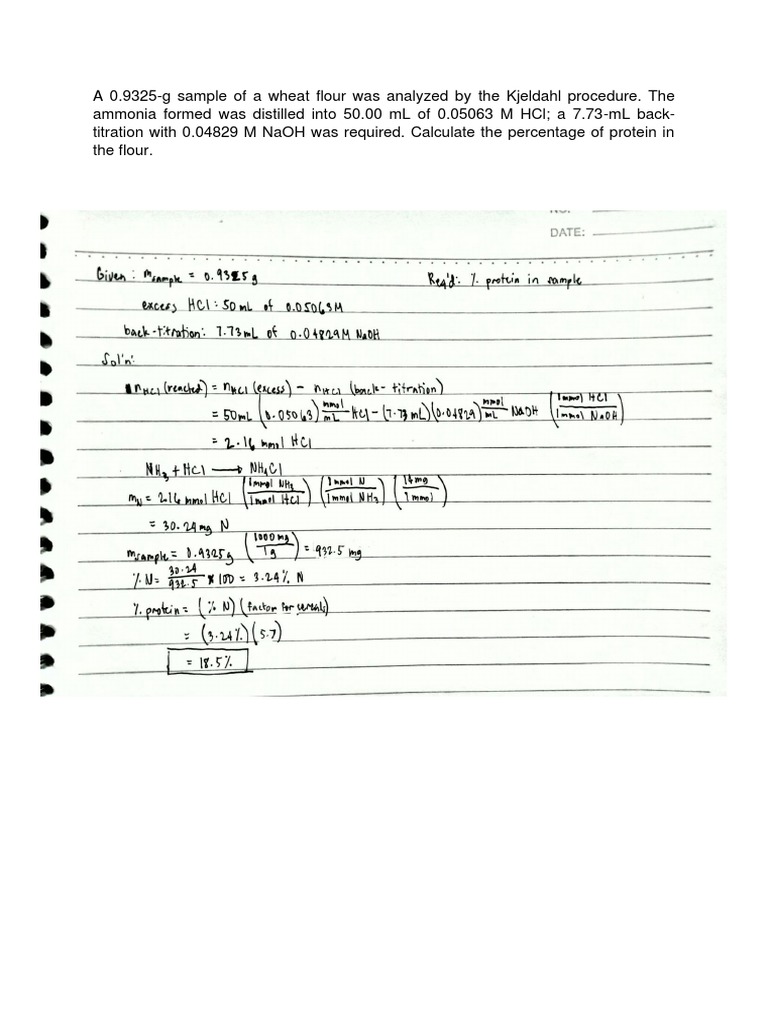 A 0.9325-g sample of a wheat flour was analyzed by the Kjeldahl procedure. The
ammonia formed was distilled into 50.00 mL of 0.05063 M HCl; a 7.73-mL back-
titration with 0.04829 M NaOH was required. Calculate the percentage of protein in
the flour.
DATE:
Given: m_sample = 0.9325 g Req'd: % protein in sample
excess HCl: 50 mL of 0.05063 M
back-titration: 7.73 mL of 0.04829 M NaOH
Sol'n:
n_HCl (reacted) = n_HCl (excess) - n_HCl (back-titration)
= 50 mL (0.05063) mmol/mL HCl - (7.73 mL)(0.04829) mmol/mL NaOH (1 mmol HCl / 1 mmol NaOH)
= 2.16 mmol HCl
NH₃ + HCl → NH₄Cl
m_N = 2.16 mmol HCl (1 mmol NH₃ / 1 mmol HCl) (1 mmol N / 1 mmol NH₃) (14 mg / 1 mmol)
= 30.24 mg N
m_sample = 0.9325 g (1000 mg / 1 g) = 932.5 mg
% N = 30.24 / 932.5 × 100 = 3.24 % N
% protein = (% N) (factor for cereals)
= (3.24 %) (5.7)
= 18.5 %